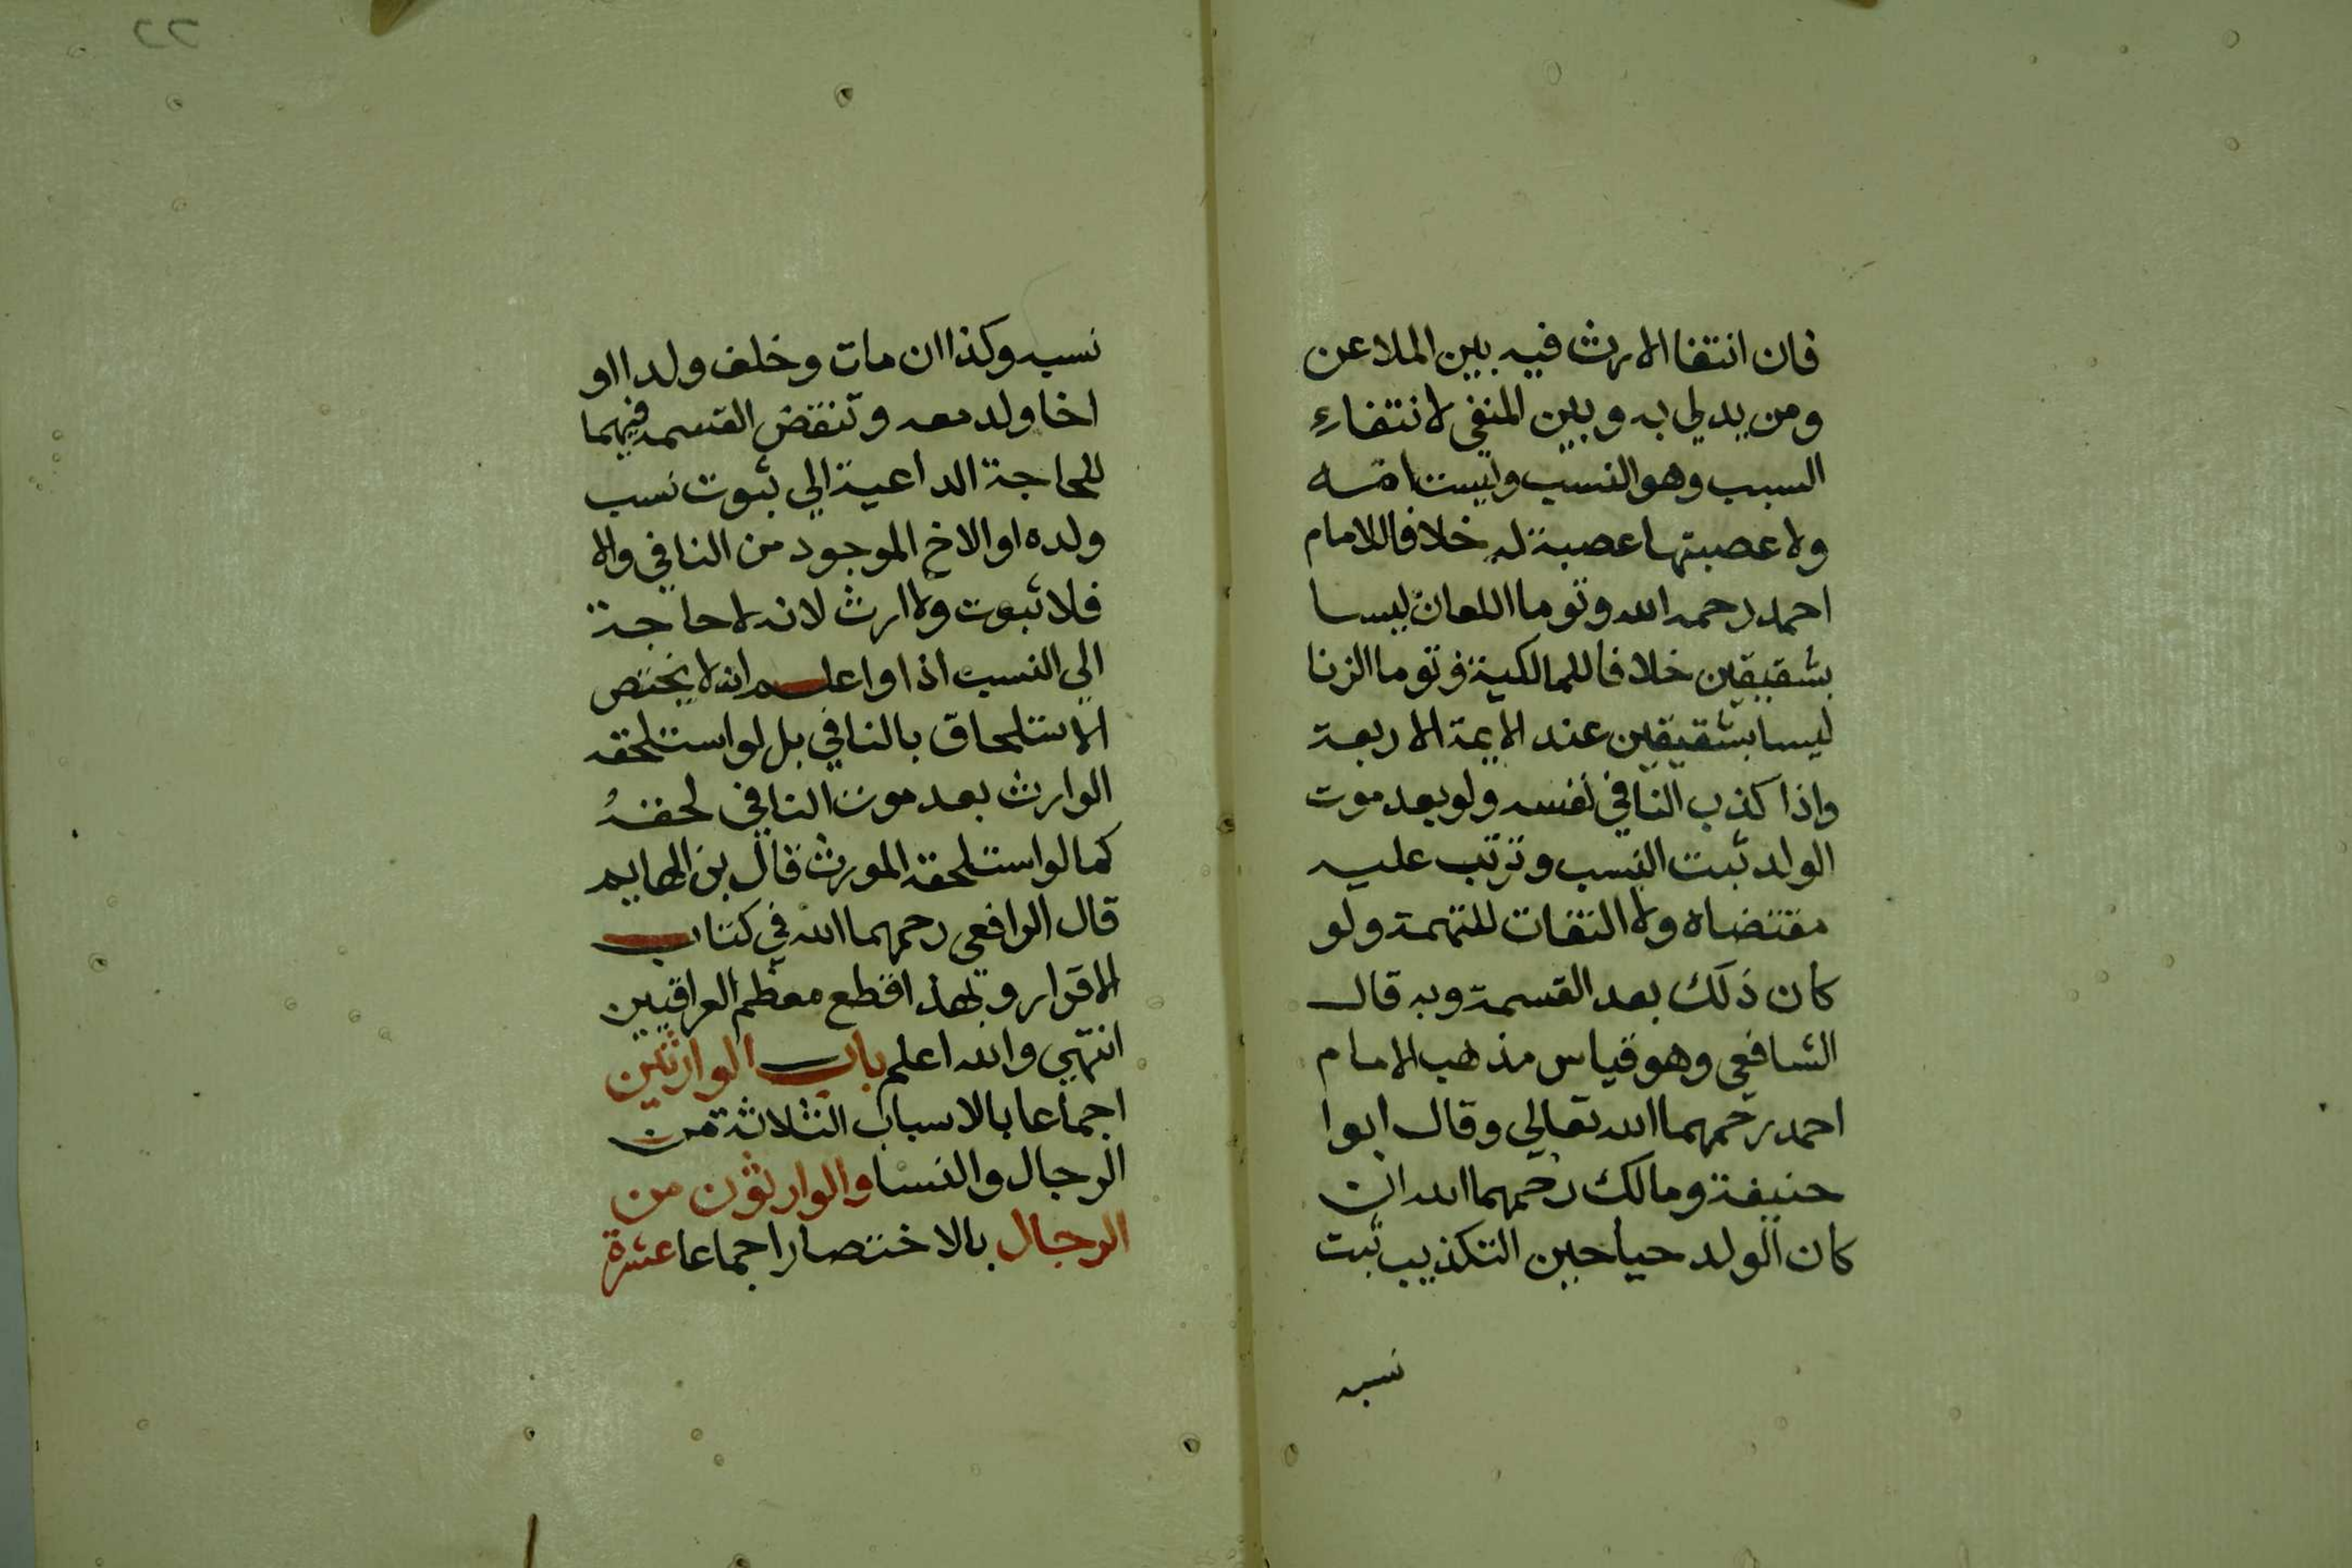 فان انتفا الارث فيه بين الملاعن
ومن يدلي به وبين المنفي لانتفاءِ
السبب وهو النسب وليست امه
ولا عصبتها عصبة له خلافا للامام
احمد رحمه الله وتوما اللعان ليسا
بشقيقين خلافا للمالكية وتوما الزنا
ليسا بشقيقين عند الايمة الاربعة
واذا كذب النافي نفسه ولو بعد موت
الولد ثبت النسب وترتب عليه
مقتضاه ولا التفات للتهمة ولو
كان ذلك بعد القسمة وبه قال
الشافعي وهو قياس مذهب الامام
احمد رحمهما الله تعالي وقال ابوا
حنيفة ومالك رحمهما الله ان
كان الولد حيا حين التكذيب ثبت
نسبه
نسبه وكذا ان مات وخلف ولدا او
اخا ولد معه وتنقض القسمه فيهما
للحاجة الداعية الي ثبوت نسب
ولده او الاخ الموجود من النافي والا
فلا ثبوت ولا ارث لانه لا حاجة
الي النسب اذا واعلم انه لا يختص
الاستلحاق بالنافي بل لو استلحقه
الوارث بعد موت النافي لحقهُ
كما لو استلحقه المورث قال بن الهايم
قال الرافعي رحمهما الله في كتاب
الاقرار وبهذا قطع معظم العراقيين
انتهي والله اعلم باب الوارثين
اجماعا بالاسباب الثلاثة من
الرجال والنسا والوارثون من
الرجال بالاختصار اجماعا عشرة